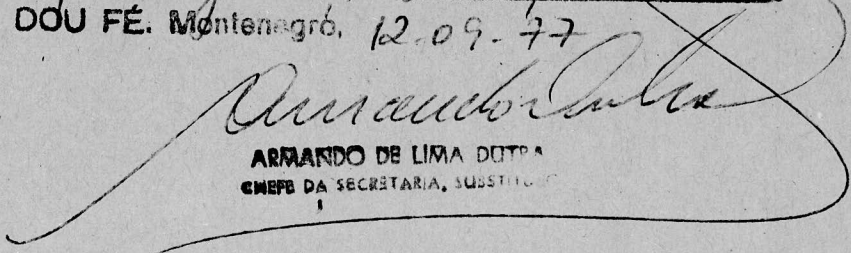 DOU FÉ. Montenegro, 12-09-77
Armando Dutra
ARMANDO DE LIMA DUTRA
CHEFE DA SECRETARIA, SUBSTITUTO